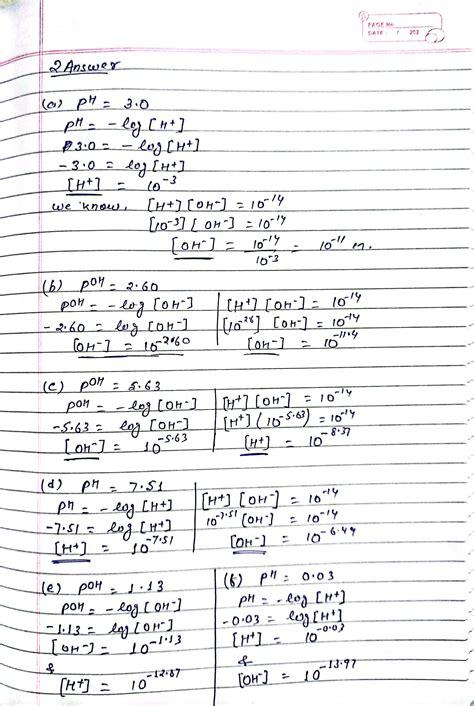 PAGE No.
DATE: / / 202
2 Answer
(a) pH = 3.0
pH = -log [H+]
3.0 = -log [H+]
-3.0 = log [H+]
[H+] = 10^-3
we know, [H+] [OH-] = 10^-14
[10^-3] [OH-] = 10^-14
[OH-] = 10^-14 / 10^-3 = 10^-11 m.
(b) pOH = 2.60
pOH = -log [OH-]
-2.60 = log [OH-]
[OH-] = 10^-2.60
[H+] [OH-] = 10^-14
[10^-26] [OH-] = 10^-14
[OH-] = 10^-11.4
(c) pOH = 5.63
pOH = -log [OH-]
-5.63 = log [OH-]
[OH-] = 10^-5.63
[H+] [OH-] = 10^-14
[H+] (10^-5.63) = 10^-14
[H+] = 10^-8.37
(d) pH = 7.51
pH = -log [H+]
-7.51 = log [H+]
[H+] = 10^-7.51
[H+] [OH-] = 10^-14
10^-7.51 [OH-] = 10^-14
[OH-] = 10^-6.49
(e) pOH = 1.13
pOH = -log [OH-]
-1.13 = log [OH-]
[OH-] = 10^-1.13
&
[H+] = 10^-12.87
(f) pH = 0.03
pH = -log [H+]
-0.03 = log [H+]
[H+] = 10^-0.03
&
[OH-] = 10^-13.97